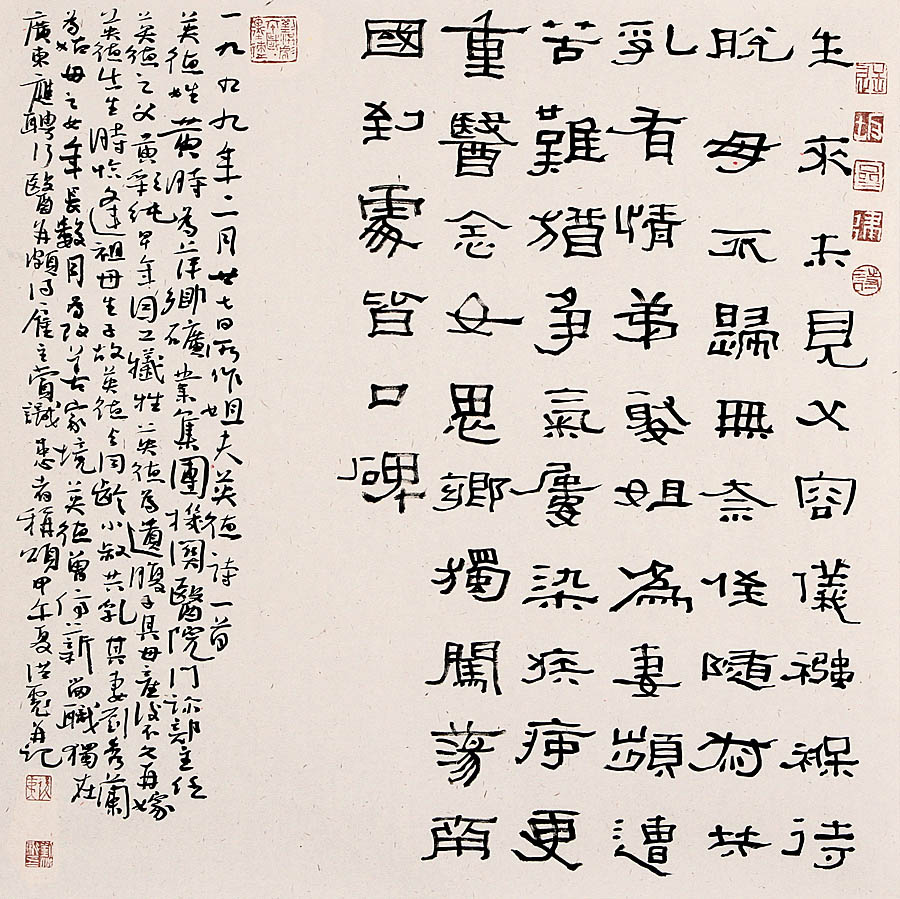 生來未見父容儀襁褓待
脫母不歸無奈侄隨叔共
乳有情弟娶姐為妻頻遭
苦難猶爭氣屢染疾疴更
重醫念女思鄉獨闖蕩南
國到處皆口碑
一九九九年二月廿七日所作姐夫英德詩一首
英德姓黃時為萍鄉礦業集團機關醫院門診部主任
英德之父黃純早年因工犧牲英德為遺腹子其母產後不久再嫁
英德出生時恰逢祖母生子故英德与同齡小叔共乳其妻劉秀蘭
為姑母之女年長數月為改善家境英德曾停薪留職獨在
廣東應聘行醫並頗得雇主賞識患者稱頌甲午夏洪彪並記